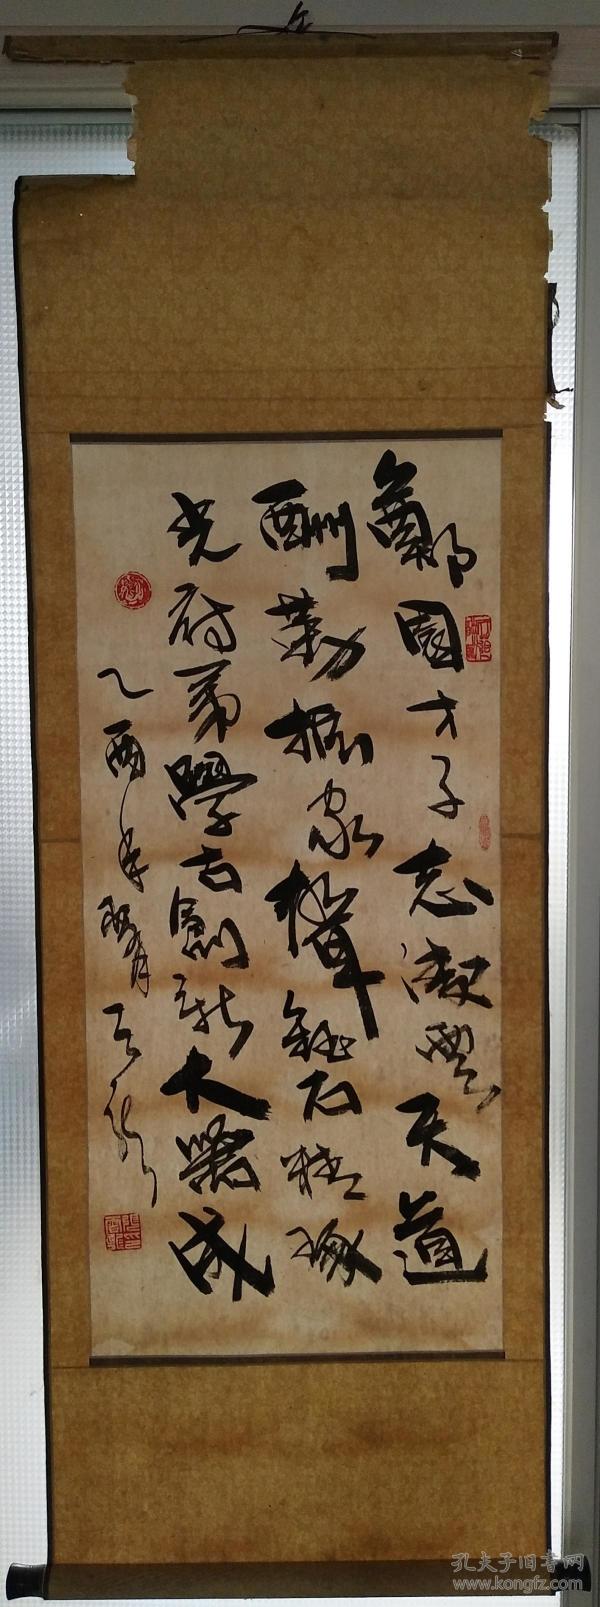 鄭國才子志凝雲天道
酬勤振家聲鉆石精琢
光府第學古創新大器成
乙酉年
孔夫子旧书网
www.kongfz.com